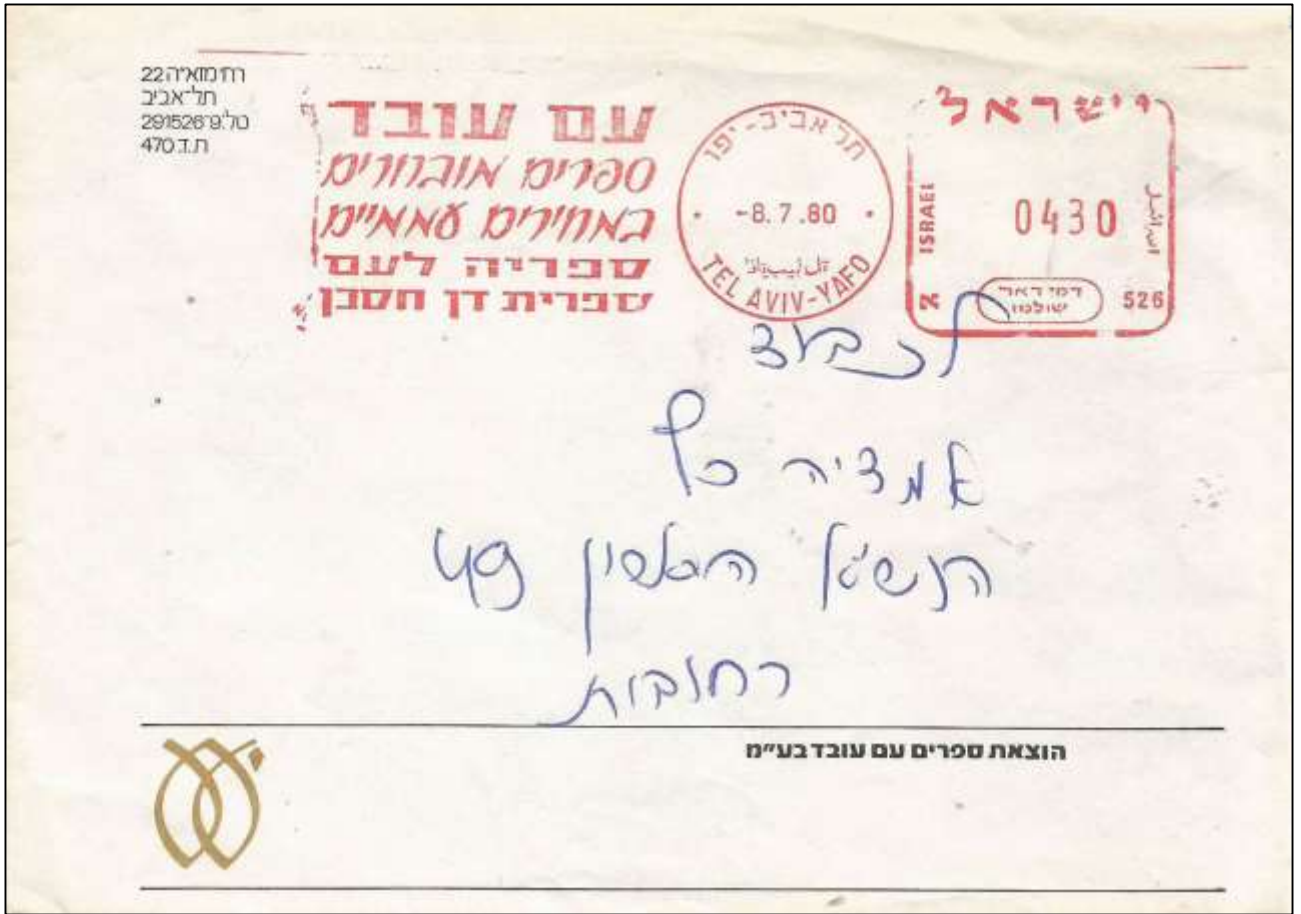 רח' מזא"ה 22
תל־אביב
טל. 291526־9
ת.ד. 470
עם עובד
ספרים מובחרים
במחירים עממיים
ספריה לעם
ספרית דן חסכן
תל אביב-יפו
-8.7.80
TEL AVIV-YAFO
ישראל
ISRAEL
0430
اسرائيل
דמי דאר
שולמו
526
לכבוד
אמציה
הנשיא הראשון 49
רחובות
הוצאת ספרים עם עובד בע״מ